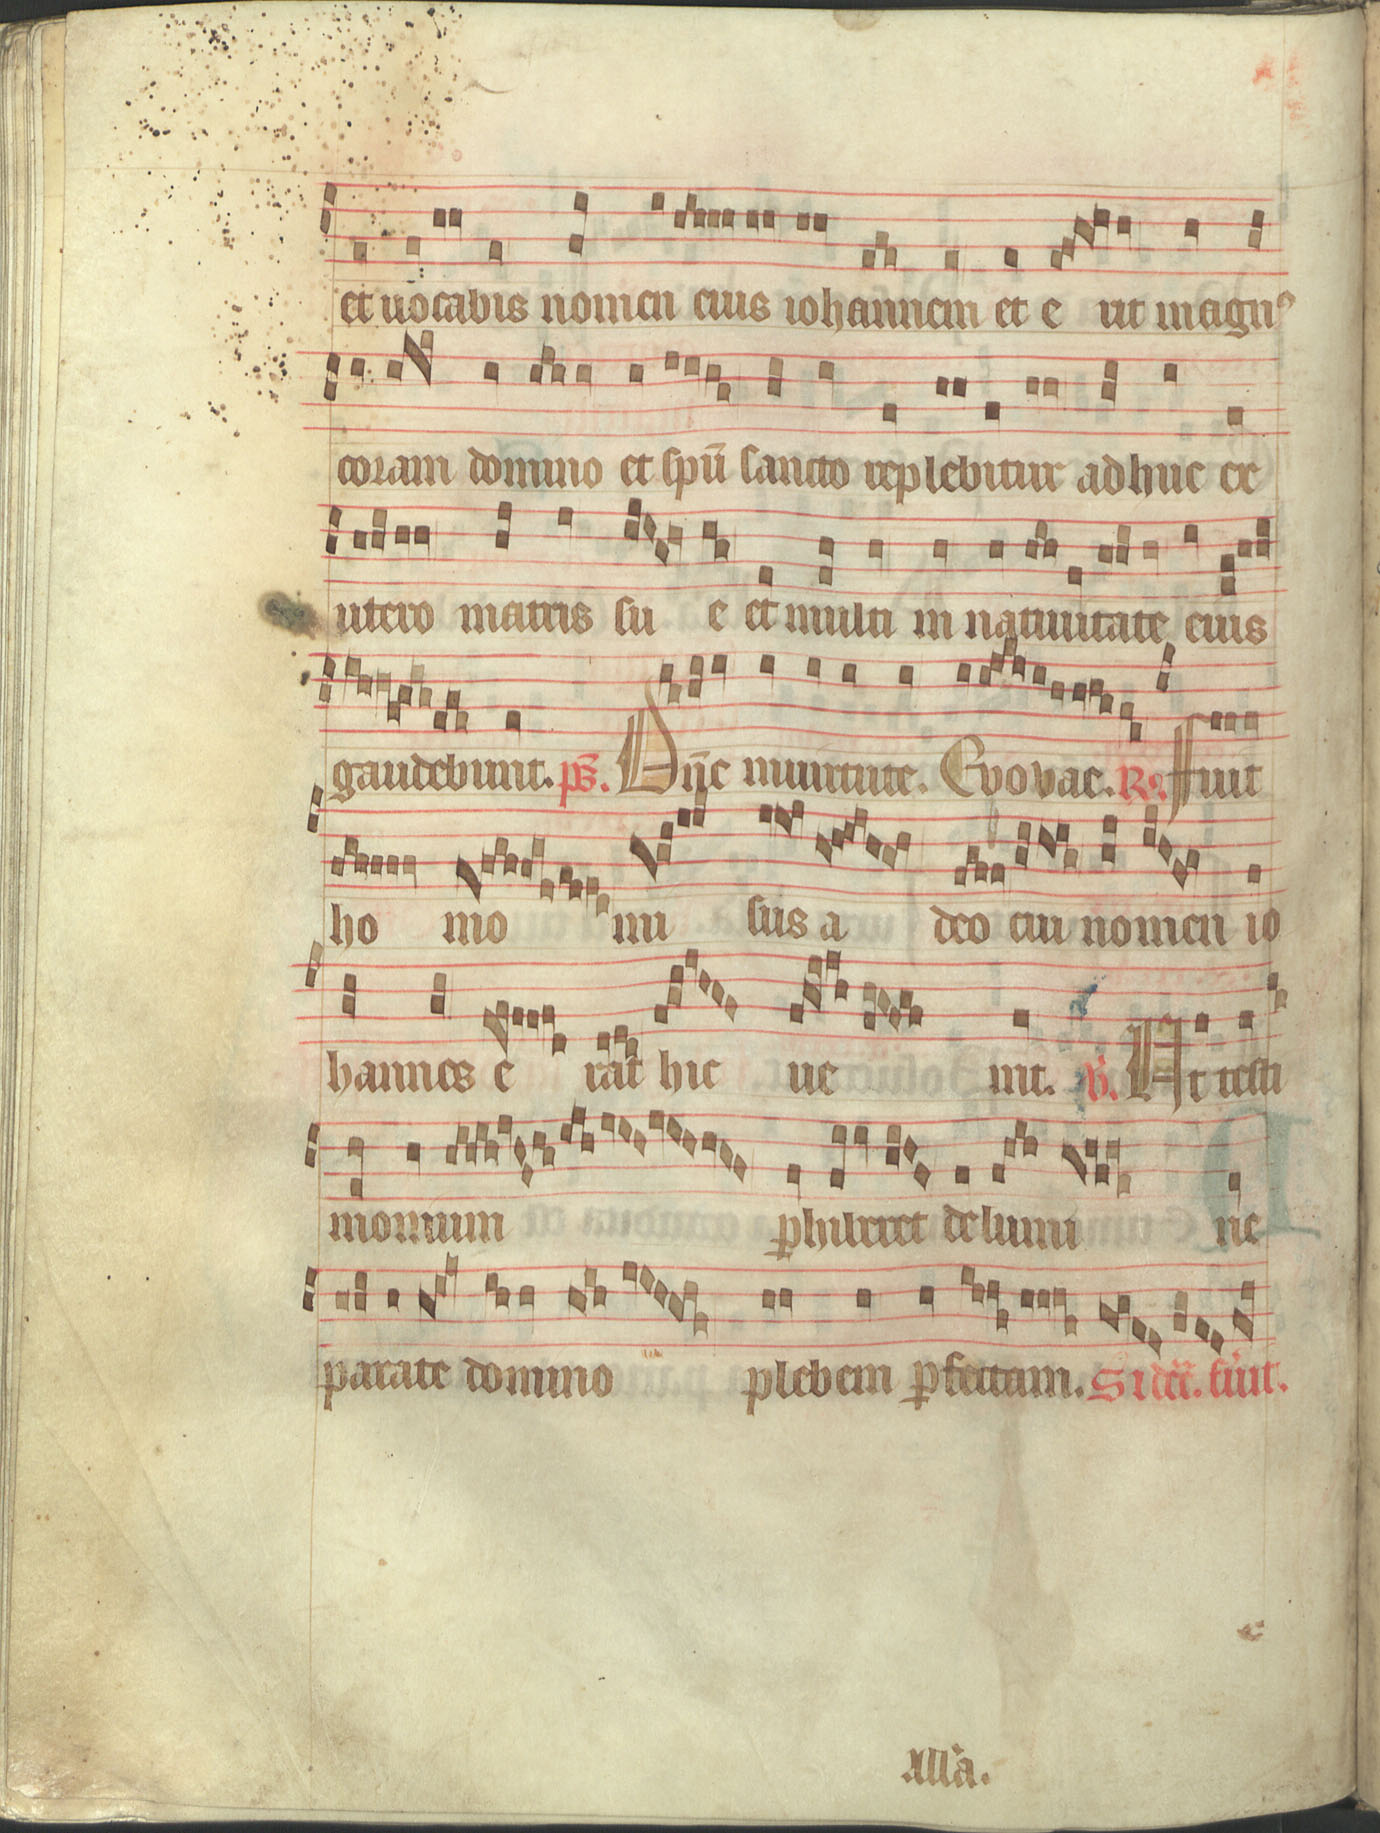 et uocabis nomen eius iohannem et e rit magnꝰ
coram domino et spū sancto replebitur adhuc ex
utero matris su e et multi in natiuitate eius
gaudebunt. ps. Dn̄e inuirtute. Evovae. R. Fuit
ho mo mi ssus a deo cui nomen io
hannes e rat hic ue nit. V. Ut testi
monium ꝑhiberet delumi ne
parare domino plebem ꝑfectam. fuit.
Alla.